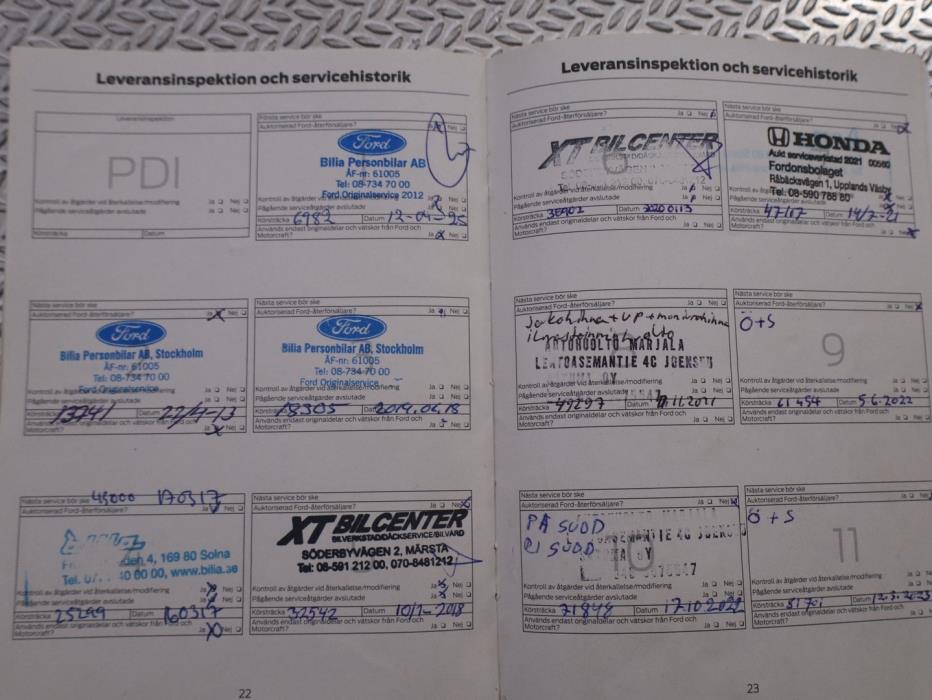 Leveransinspektion och servicehistorik
Leveransinspektion
PDI
Kontroll av åtgärder vid återkallelse/modifiering Ja Nej
Pågående serviceåtgärder avslutade Ja Nej
Körsträcka Datum
Första service bör ske
Auktoriserad Ford-återförsäljare? Ja Nej
Ford
Bilia Personbilar AB
ÅF-nr: 61005
Tel: 08-734 70 00
Ford Originalservice 2012
Körsträcka 6982 Datum 12-04-25
Används endast originaldelar och vätskor från Ford och Motorcraft? Ja Nej
Nästa service bör ske
Auktoriserad Ford-återförsäljare? Ja Nej
Ford
Bilia Personbilar AB, Stockholm
ÅF-nr: 61005
Tel: 08-734 70 00
Ford Originalservice
Kontroll av åtgärder vid återkallelse/modifiering
Pågående serviceåtgärder avslutade Ja Nej
Körsträcka 13241 Datum 22/4-13
Används endast originaldelar och vätskor från Ford och
Motorcraft? Ja Nej
Nästa service bör ske
Auktoriserad Ford-återförsäljare? Ja Nej
Ford
Bilia Personbilar AB, Stockholm
ÅF-nr: 61005
Tel: 08-734 70 00
Ford Originalservice
Kontroll av åtgärder vid återkallelse/modifiering
Pågående serviceåtgärder avslutade Ja Nej
Körsträcka 18305 Datum 2014.04.18
Används endast originaldelar och vätskor från Ford och
Motorcraft? Ja Nej
Nästa service bör ske 45000 170317
Auktoriserad Ford-återförsäljare? Ja Nej
den 4, 169 80 Solna
00 00, www.bilia.se
Kontroll av åtgärder vid återkallelse/modifiering
Pågående serviceåtgärder avslutade Ja Nej
Körsträcka 25299 160317
Används endast originaldelar och vätskor från Ford och
Motorcraft? Ja Nej
Nästa service bör ske
Auktoriserad Ford-återförsäljare? Ja Nej
XT BILCENTER
BILVERKSTAD/DÄCKSERVICE/BILVÅRD
SÖDERBYVÄGEN 2, MÄRSTA
Tel: 08-591 212 00, 070-8481212
Kontroll av åtgärder vid återkallelse/modifiering
Pågående serviceåtgärder avslutade Ja Nej
Körsträcka 32542 Datum 10/1-2018
Används endast originaldelar och vätskor från Ford och
Motorcraft? Ja Nej
22
Leveransinspektion och servicehistorik
Nästa service bör ske
Auktoriserad Ford-återförsäljare? Ja Nej
XT BILCENTER
Kontroll av åtgärder vid återkallelse/modifiering
Pågående serviceåtgärder avslutade Ja Nej
Körsträcka Datum 20200113
Används endast originaldelar och vätskor från Ford och
Motorcraft? Ja Nej
Nästa service bör ske
Auktoriserad Ford-återförsäljare? Ja
HONDA
Aukt serviceverkstad 2021 00560
Fordonsbolaget
Råbäcksvägen 1, Upplands Väsby
Tel: 08-590 788 80
Pågående serviceåtgärder avslutade
Körsträcka 47117 Datum 14/7-21
Används endast originaldelar och vätskor från Ford och
Motorcraft? Ja Nej
Nästa service bör ske
Auktoriserad Ford-återförsäljare? Ja Nej
AUTOHUOLTO MARJALA
LENTOASEMANTIE 4C JOENSUU
Kontroll av åtgärder vid återkallelse/modifiering
Pågående serviceåtgärder avslutade
Körsträcka 49297 Datum
Används endast originaldelar och vätskor från Ford och
Motorcraft? Ja Nej
Nästa service bör ske
Auktoriserad Ford-återförsäljare? Ja
Ö+S
9
Kontroll av åtgärder vid återkallelse/modifiering
Pågående serviceåtgärder avslutade Ja Nej
Körsträcka 61454 Datum 5.6.2022
Används endast originaldelar och vätskor från Ford och
Motorcraft? Ja Nej
Nästa service bör ske
Auktoriserad Ford-återförsäljare? Ja Nej
10
Kontroll av åtgärder vid återkallelse/modifiering
Pågående serviceåtgärder avslutade Ja Nej
Körsträcka 71848 Datum
Används endast originaldelar och vätskor från Ford och
Motorcraft? Ja Nej
Nästa service bör ske
Auktoriserad Ford-återförsäljare? Ja
Ö+S
11
Kontroll av åtgärder vid återkallelse/modifiering
Pågående serviceåtgärder avslutade Ja
Körsträcka Datum
Används endast originaldelar och vätskor från Ford och
Motorcraft? Ja
23